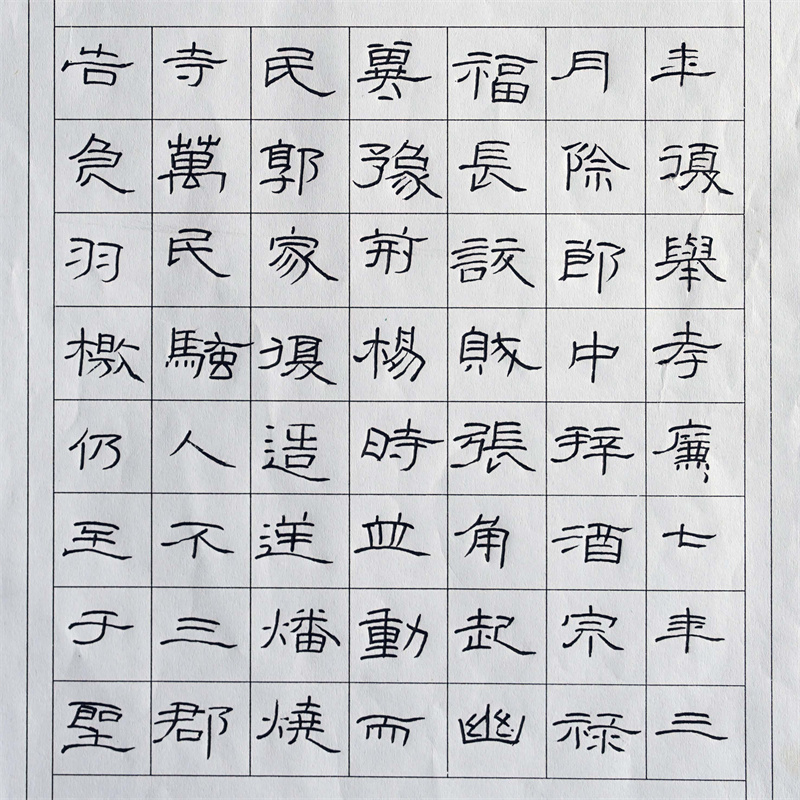 年復舉孝廉七年三
月除郎中拜酒宗祿
福長訞賊張角起幽
冀豫荊楊時並動而
民郭家復造逆燔燒
寺萬民騷人不三郡
告急羽檄仍至于聖